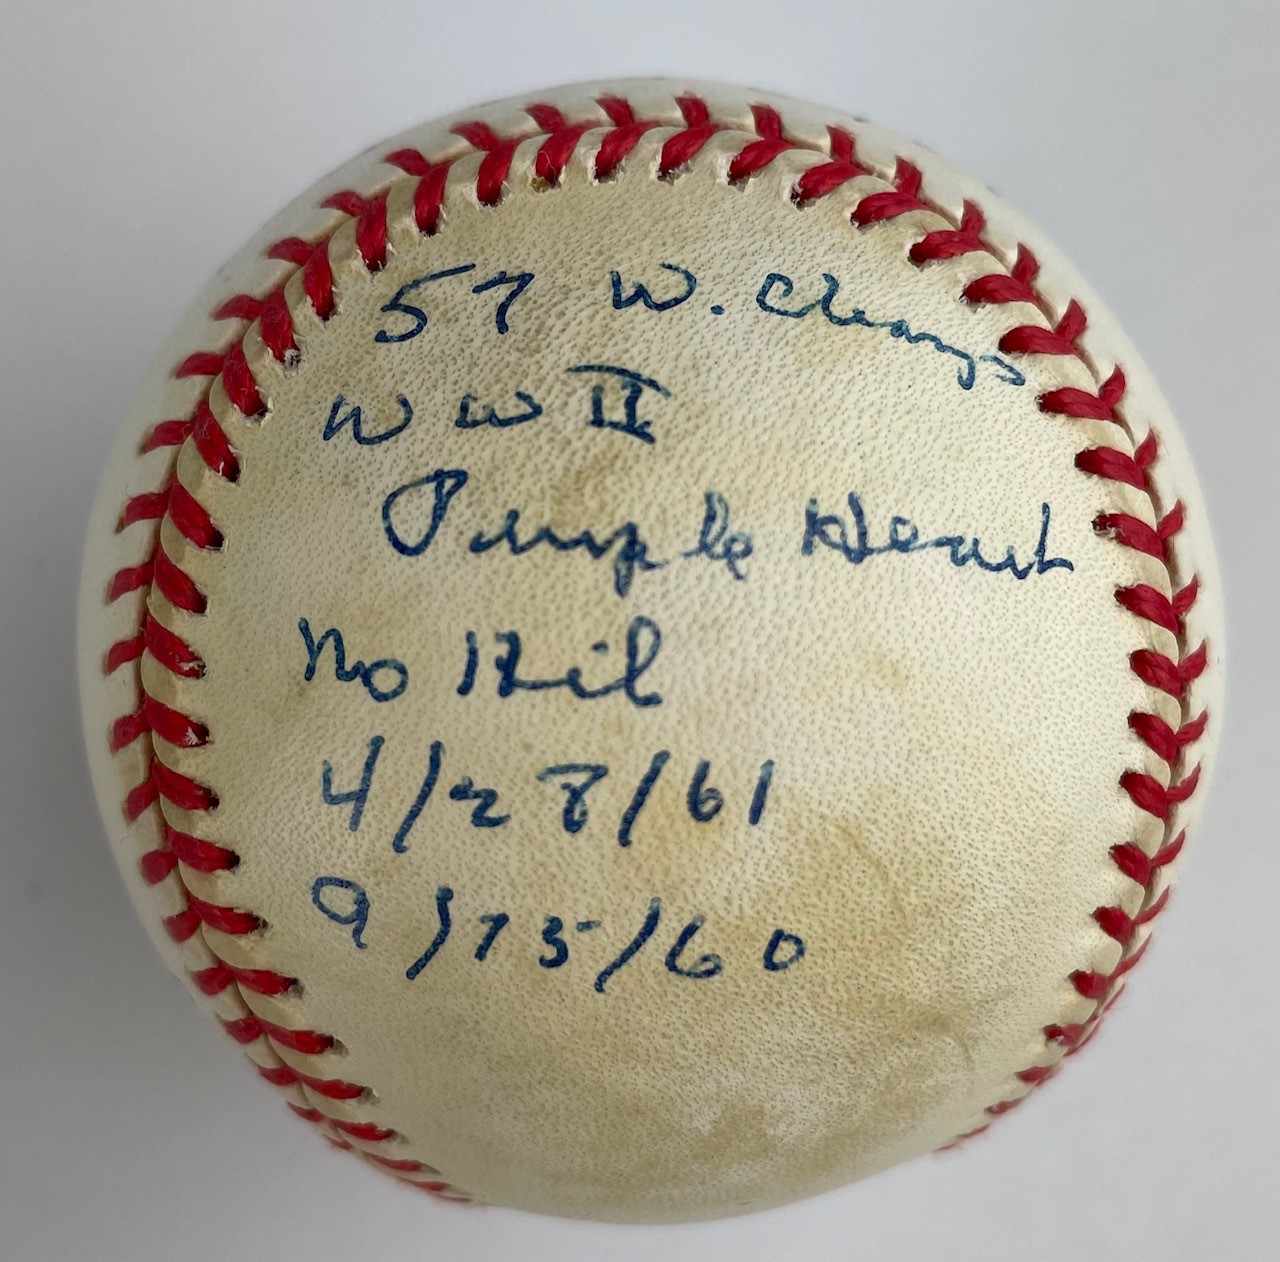 57 W. Champs
WW II
Purple Heart
No Hit
4/28/61
9/15/60